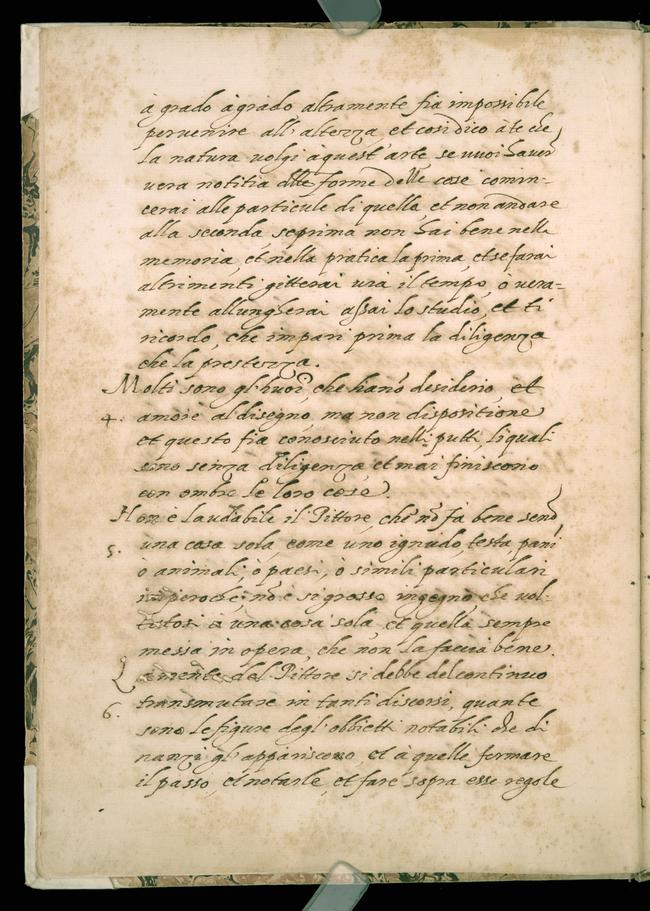 à grado à grado altramente fia impossibile
pervenire all' altezza et cosi dico à te che
la natura volgi à quest' arte se vuoi haver
vera notitia delle forme delle cose comin-
cerai alle particule di quelle, et non andare
alla seconda, se prima non hai bene nella
memoria, et nella pratica la prima, et se farai
altrimenti gitterai via il tempo, o vera-
mente allungherai assai lo studio, et ti
ricordo, che impari prima la diligenza
che la prestezza.
Molti sono gl' huoi che hano desiderio, et
4. amore al disegno, ma non dispositione
et questo fia conosciuto nelli putti, li quali
sono senza diligenza et mai finiscono
con ombre le loro cose.
Non è laudabile il Pittore che nō fa bene senō
5. una cosa sola come uno ignudo, testa, pani
ò animali, ò paesi, ò simili particulari
imperoche nō è si grosso ingegno che vol-
tatosi à una cosa sola, et quella sempre
messa in opera, che non la faccia bene.
La mente del Pittore si debbe del continuo
6. transmutare in tanti discorsi, quante
sono le figure degl' obbietti notabili che di
nanzi gl' appariscono, et à quelle fermare
il passo, et notarle, et fare sopra esse regole